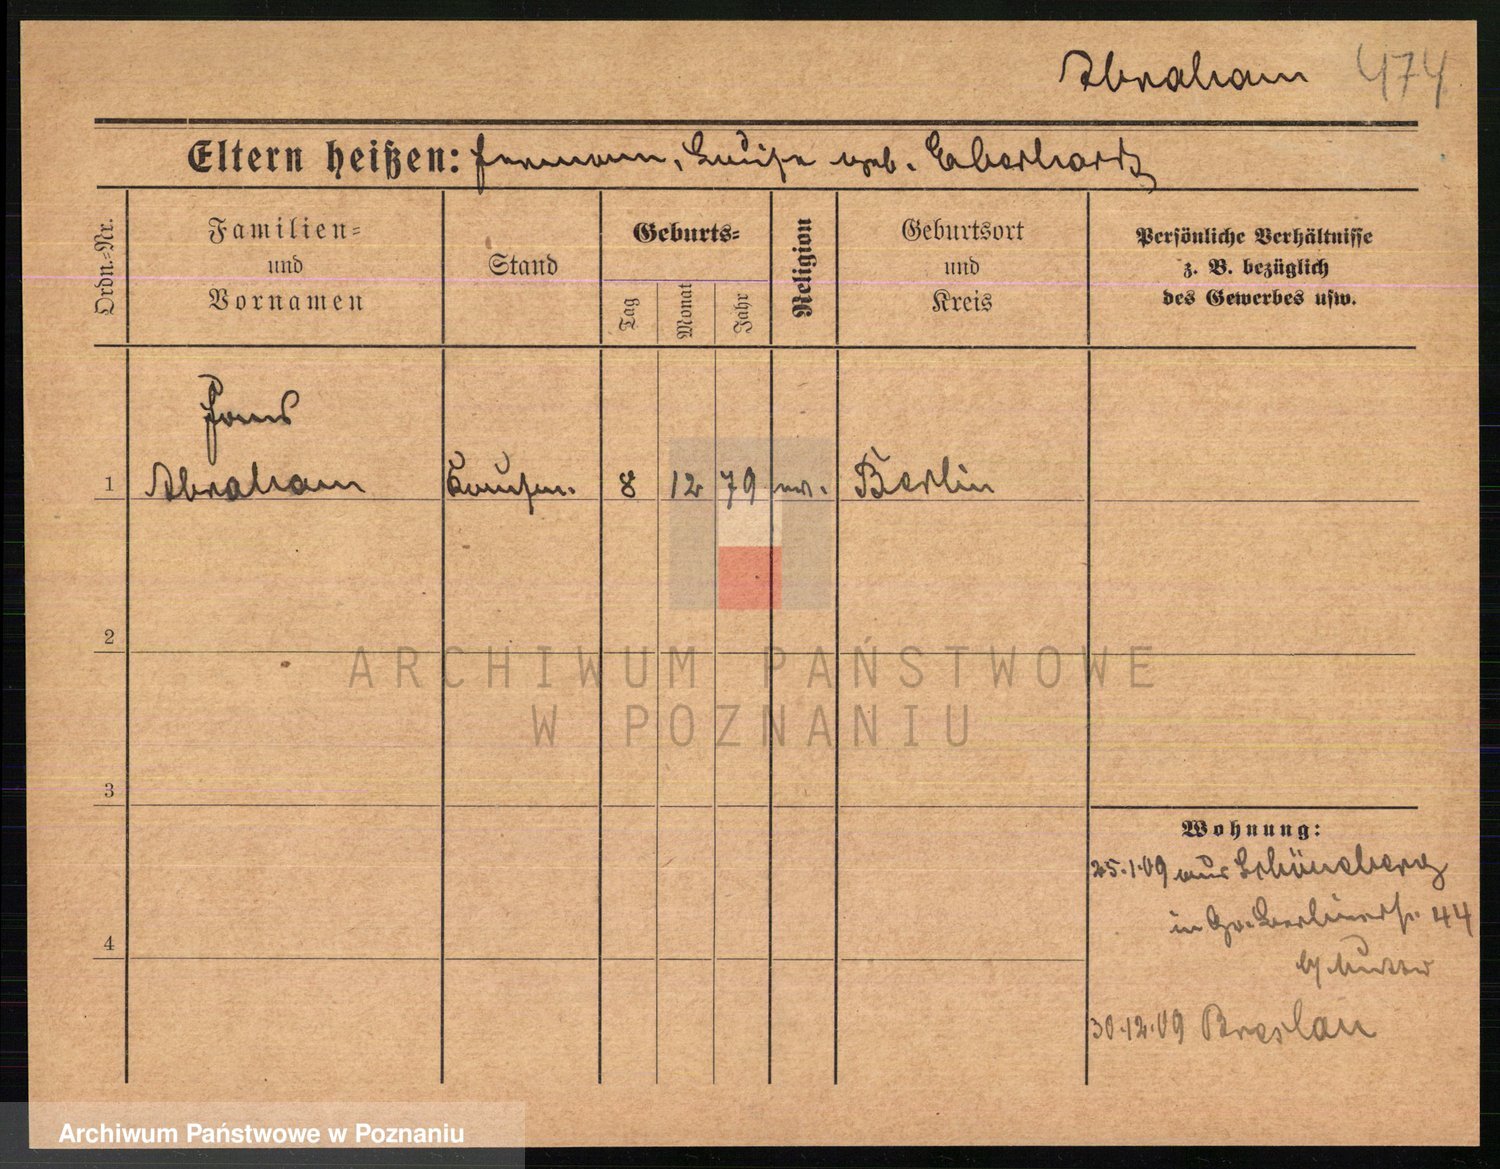 Abraham 474
Eltern heißen: Hermann, Luise geb. Eberhardt
Ordn.=Nr.
Familien=
und
Vornamen
Stand
Geburts=
Tag
Monat
Jahr
Religion
Geburtsort
und
Kreis
Persönliche Verhältnisse
z. B. bezüglich
des Gewerbes usw.
Hans
1 Abraham Kaufm. 8 12 79 ev. Berlin
2
3
4
Wohnung:
25.1.09 aus Schöneberg
in Gr. Berlinerstr. 44
b/
30.12.09 Breslau
ARCHIWUM PAŃSTWOWE
W POZNANIU
Archiwum Państwowe w Poznaniu